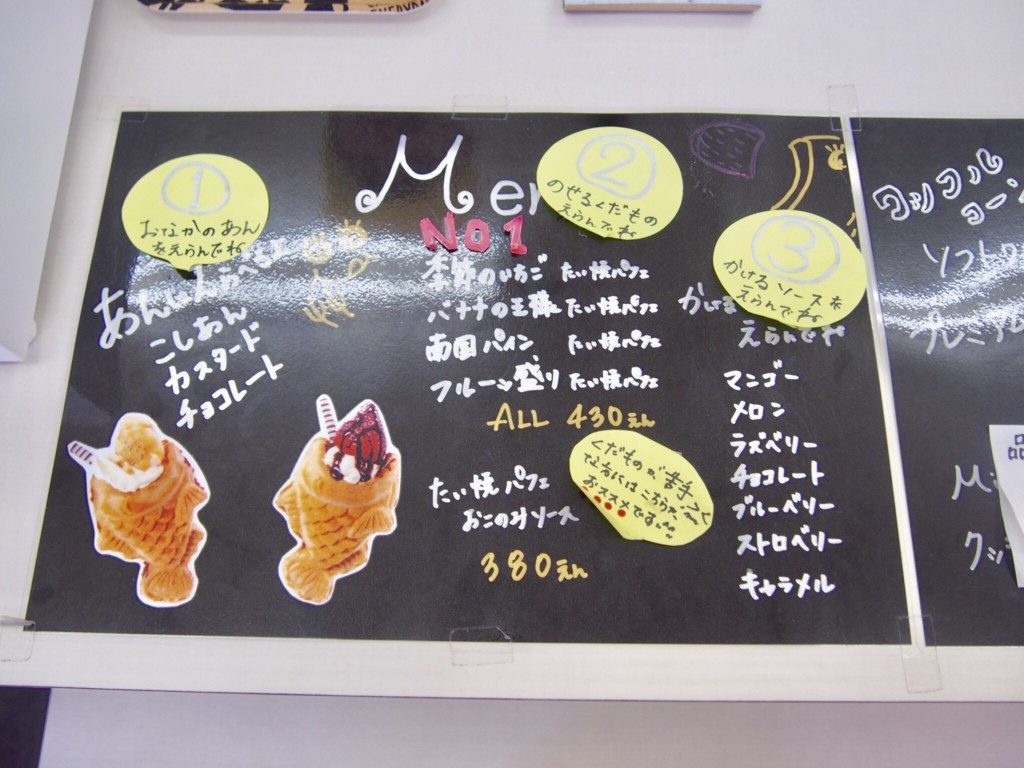 Menu
①
おなかのあん
をえらんでね
あん
こしあん
カスタード
チョコレート
②
のせるくだもの
えらんでね
NO1
季節のいちご たい焼パフェ
バナナの王様 たい焼パフェ
南国パイン たい焼パフェ
フルーツ盛り たい焼パフェ
ALL 430えん
たい焼パフェ
おこのみソース
380えん
くだものが苦手
なかたはこちらが
おススメです。
③
かけるソースを
えらんでね
かける
えらんでね
マンゴー
メロン
ラズベリー
チョコレート
ブルーベリー
ストロベリー
キャラメル
ワッフル
コーン
ソフト
プレミアム